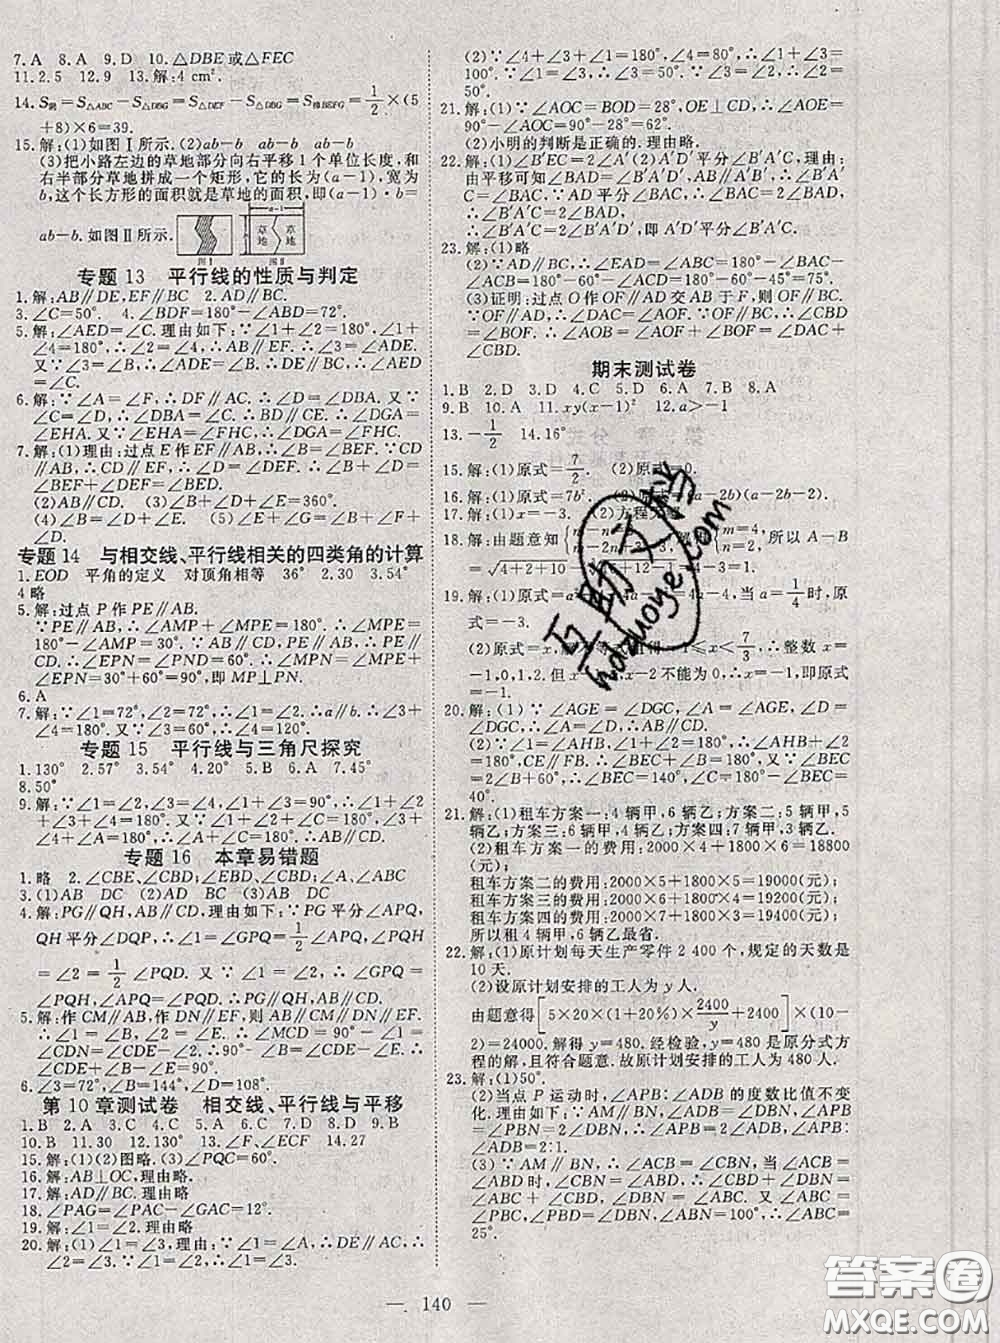 7. A　8. A　9. D　10. △DBE或△FEC
11. 2.5　12. 9　13. 解:4 cm².
14. S阴=S△ABC−S△DBE=S△DEF−S△DBE=S梯BEFG=1/2×(5
+8)×6=39.
15. 解:(1)如图Ⅰ所示. (2)ab−b　ab−b
(3)把小路左边的草地部分向右平移1个单位长度,和
右半部分草地拼成一个矩形,它的长为(a−1),宽为
b,这个长方形的面积就是草地的面积,即(a−1)·b=
ab−b. 如图Ⅱ所示.
a−1
草地
草地
图Ⅰ
图Ⅱ
专题 13　平行线的性质与判定
1. 解:AB∥DE,EF∥BC　2. AD∥BC.
3. ∠C=50°.　4. ∠BDF=180°−∠BDG=72°.
5. 解:∠AED=∠C. 理由如下:∵∠1+∠2=180°,∠1+
∠4=180°,∴∠2=∠4,∴AB∥EF,∴∠3=∠ADE.
又∵∠3=∠B,∴∠ADE=∠B,∴DE∥BC,∴∠AED
=∠C.
6. 解:∵∠A=∠F,∴DF∥AC. ∴∠C=∠DBA. 又∵∠C
=∠D,∴∠D=∠DBA. ∴DB∥CE. ∴∠DGA=
∠EHA. 又∵∠FGB=∠EHF,∴∠DGA=∠FGB,
∴∠EHA=∠EHF.
7. 解:(1)理由:过点E作EP∥AB,∴∠B=∠BEP. ∵CD
∥AB,∴CD∥EP,∴∠D=∠PED. ∴∠BED=∠BEP
+∠PED=∠B+∠D.
(2)AB∥CD　(3)∠B+∠D+∠E=360°.
(4)∠B=∠D+∠E　(5)∠E+∠G=∠B+∠F+∠D.
专题 14　与相交线、平行线相关的四类角的计算
1. EOD　平角的定义　对顶角相等　36°　2. 30　3. 54°
4 略
5. 解:过点P作PE∥AB.
∵PE∥AB,∴∠AMP+∠MPE=180°. ∴∠MPE=
180°−∠AMP=30°. ∵AB∥CD,PE∥AB,∴PE∥CD,
∴∠EPN=∠PND=60°. ∴∠MPN=∠MPE+
∠EPN=30°+60°=90°,即MP⊥PN.
6. A
7. 解:∵∠1=72°,∠2=72°,∴∠1=∠2,∴a∥b. ∴∠3+
∠4=180°. 又∵∠3=60°,∴∠4=120°.
专题 15　平行线与三角尺探究
1. 130°　2. 57°　3. 54°　4. 20°　5. B　6. A　7. 45°
8. 50°
9. 解:∵∠1=∠2,∠3=∠4,∠1+∠3=90°,∴∠2+
∠4=90°. ∵∠1+∠2+∠3+∠4=90°+90°=180°,
∠1+∠2+∠3+∠4+∠5+∠6=360°,∴∠5+∠6=
180°,∴AB∥CD.
专题 16　本章易错题
1. 略　2. ∠CBE、∠CBD;∠EBD、∠CBD;∠A、∠ABC
3. (1)AB　DC　(2)AD　BC　(3)AB　DC
4. 解:PG∥QH,AB∥CD,理由如下:∵PG平分∠APQ,
QH平分∠DQP,∴∠1=∠GPQ=1/2∠APQ,∠PQH
=∠2=1/2∠PQD. 又∵∠1=∠2,∴∠GPQ=
∠PQH,∠APQ=∠PQD. ∴PG∥QH,AB∥CD.
5. 解:作CM∥AB,作DN∥EF,则AB∥CM∥DN∥EF.
∴∠1=∠B,∠2=∠E,∴∠MCD=90°−∠1=
∠CDN=∠CDE−∠2,∴90°−∠B=∠CDE−∠E.
∴∠B+∠CDE−∠E=90°.
6. ∠3=72°,∠2=180°−∠3=108°.
第 10 章测试卷　相交线、平行线与平移
1. B　2. A　3. C　4. C　5. A　6. C　7. D　8. D　9. D
10. B　11. 30　12. 130°　13. ∠F、∠ECF　14. 27
15. 解:(1)(2)图略.(3)∠PQC=60°.
16. 解:AB⊥OC,理由略.
17. 解:AD∥BC. 理由略
18. ∠PAG=∠PAC−∠GAC=12°.
19. 解:∠1=∠2. 理由略
20. 解:(1)∠1=∠3,理由:∵∠1=∠A,∴DE∥AC,∴
∠2=∠3. 又∵∠1=∠2,∴∠1=∠3.
(2)∵∠4+∠3+∠1=180°,∴∠4=80°,∠3+∠1=
100°. ∵∠2=∠1,∠2=∠3,∴∠1=∠3,∴∠3=
50°.
21. 解:(1)∵∠AOC=BOD=28°,OE⊥CD,∴∠AOE=
90°−∠AOC=90°−28°=62°.
(2)小明的判断是正确的. 理由略.
22. 解:∠B′EC=2∠A′　(2)A′D′平分∠B′A′C. 理由:
由平移可知∠BAD=∠B′A′D′,AB∥A′B′,∴∠B′A′C
=∠BAC. ∵AD平分∠BAC,∴∠BAC=2∠BAD,
∴∠B′A′C=2∠BAD,
∴∠B′A′C=2∠B′A′D′,即A′D′平分∠B′A′C.
23. 解:(1)略
(2)∵OB∥AC,∴∠BOA+∠OAC=180°. 又∵∠BOA
=120°,∴∠OAC=180°−120°=60°.
(3)证明:过点O作OF∥AD交AB于F,则OF∥BC.
∵OF∥AD,∴∠AOF=∠OAD. ∵OF∥BC,∴∠CBO
=∠BOF. ∴∠AOB=∠AOF+∠BOF=∠DAC+
∠CBD.
期末测试卷
1. B　2. D　3. D　4. C　5. D　6. A　7. B　8. A
9. B　10. A　11. xy(x−1)²　12. a>−1
13. −1/2　14. 16°
15. 解:(1)原式=7/2.　(2)原式=0.
16. 解:(1)原式=7b².　(2)原式=(a−2b)(a−2−2b).
17. 解:(1)x=−3.　(2)方程无
18. 解:由题意知
m=4,
所以 A−B
=√4+2+10
19. 解:(1)原式 4a−4,当a=1/4时,原
式=−3.
(2)原式=x, ≤x<7/3,∴整数x=
−1,0,1,2. 但x只能取−1,∴当x=−1时,原
式=−1.
20. 解:(1)∵∠AGE=∠DGC,∠AGE=∠A,∠D=
∠DGC,∴∠A=∠D,∴AB∥CD.
(2)∵∠1+∠2=180°,∠AHB=∠1,∴∠AHB+∠2=
180°,CE∥FB. ∴∠CEB+∠B=180°. ∵∠BEC=
2∠B+60°,∴∠BEC=140°,∴∠C=180°−∠BEC=
40°.
21. 解:(1)租车方案一:4辆甲,6辆乙;方案二:5辆甲,5
辆乙;方案三:6辆甲,4辆乙;方案四:7辆甲,3辆乙.
(2)租车方案一的费用:2000×4+1800×6=18800
(元);
租车方案二的费用:2000×5+1800×5=19000(元);
租车方案三的费用:2000×6+1800×4=19200(元);
租车方案四的费用:2000×7+1800×3=19400(元);
所以租4辆甲,6辆乙最省.
22. 解:(1)原计划每天生产零件2 400个,规定的天数是
10天.
(2)设原计划安排的工人为y人.
由题意得[5×20×(1+20%)×2400/y+2400]×(10−
2)=24000. 解得y=480. 经检验,y=480是原分式方
程的解,且符合题意. 故原计划安排的工人为480人.
23. 解:(1)50°.
(2)当点P运动时,∠APB:∠ADB的度数比值不变
化. 理由如下:∵AM∥BN,∴∠APB=∠PBN,∠ADB
=∠DBN. ∵∠PBN=2∠DBN,∴∠APB=
2∠ADB,∴∠APB:∠ADB=2:1.
(3)∵AM∥BN,∴∠ACB=∠CBN,当∠ACB=
∠ABD时,∠CBN=∠ABD. ∴∠CBN=∠CBD+
∠DBN=∠ABC+∠CBD,∴∠DBN=∠ABC. 又
∵∠CBD=∠CBP+∠PBD=50°,∠ABC=
∠PBC,∠PBD=∠DBN,∠ABN=100°,∴∠ABC=
25°.
互助文档
hdzuoye.com
答案圈
MXQE.COM
— 140 —